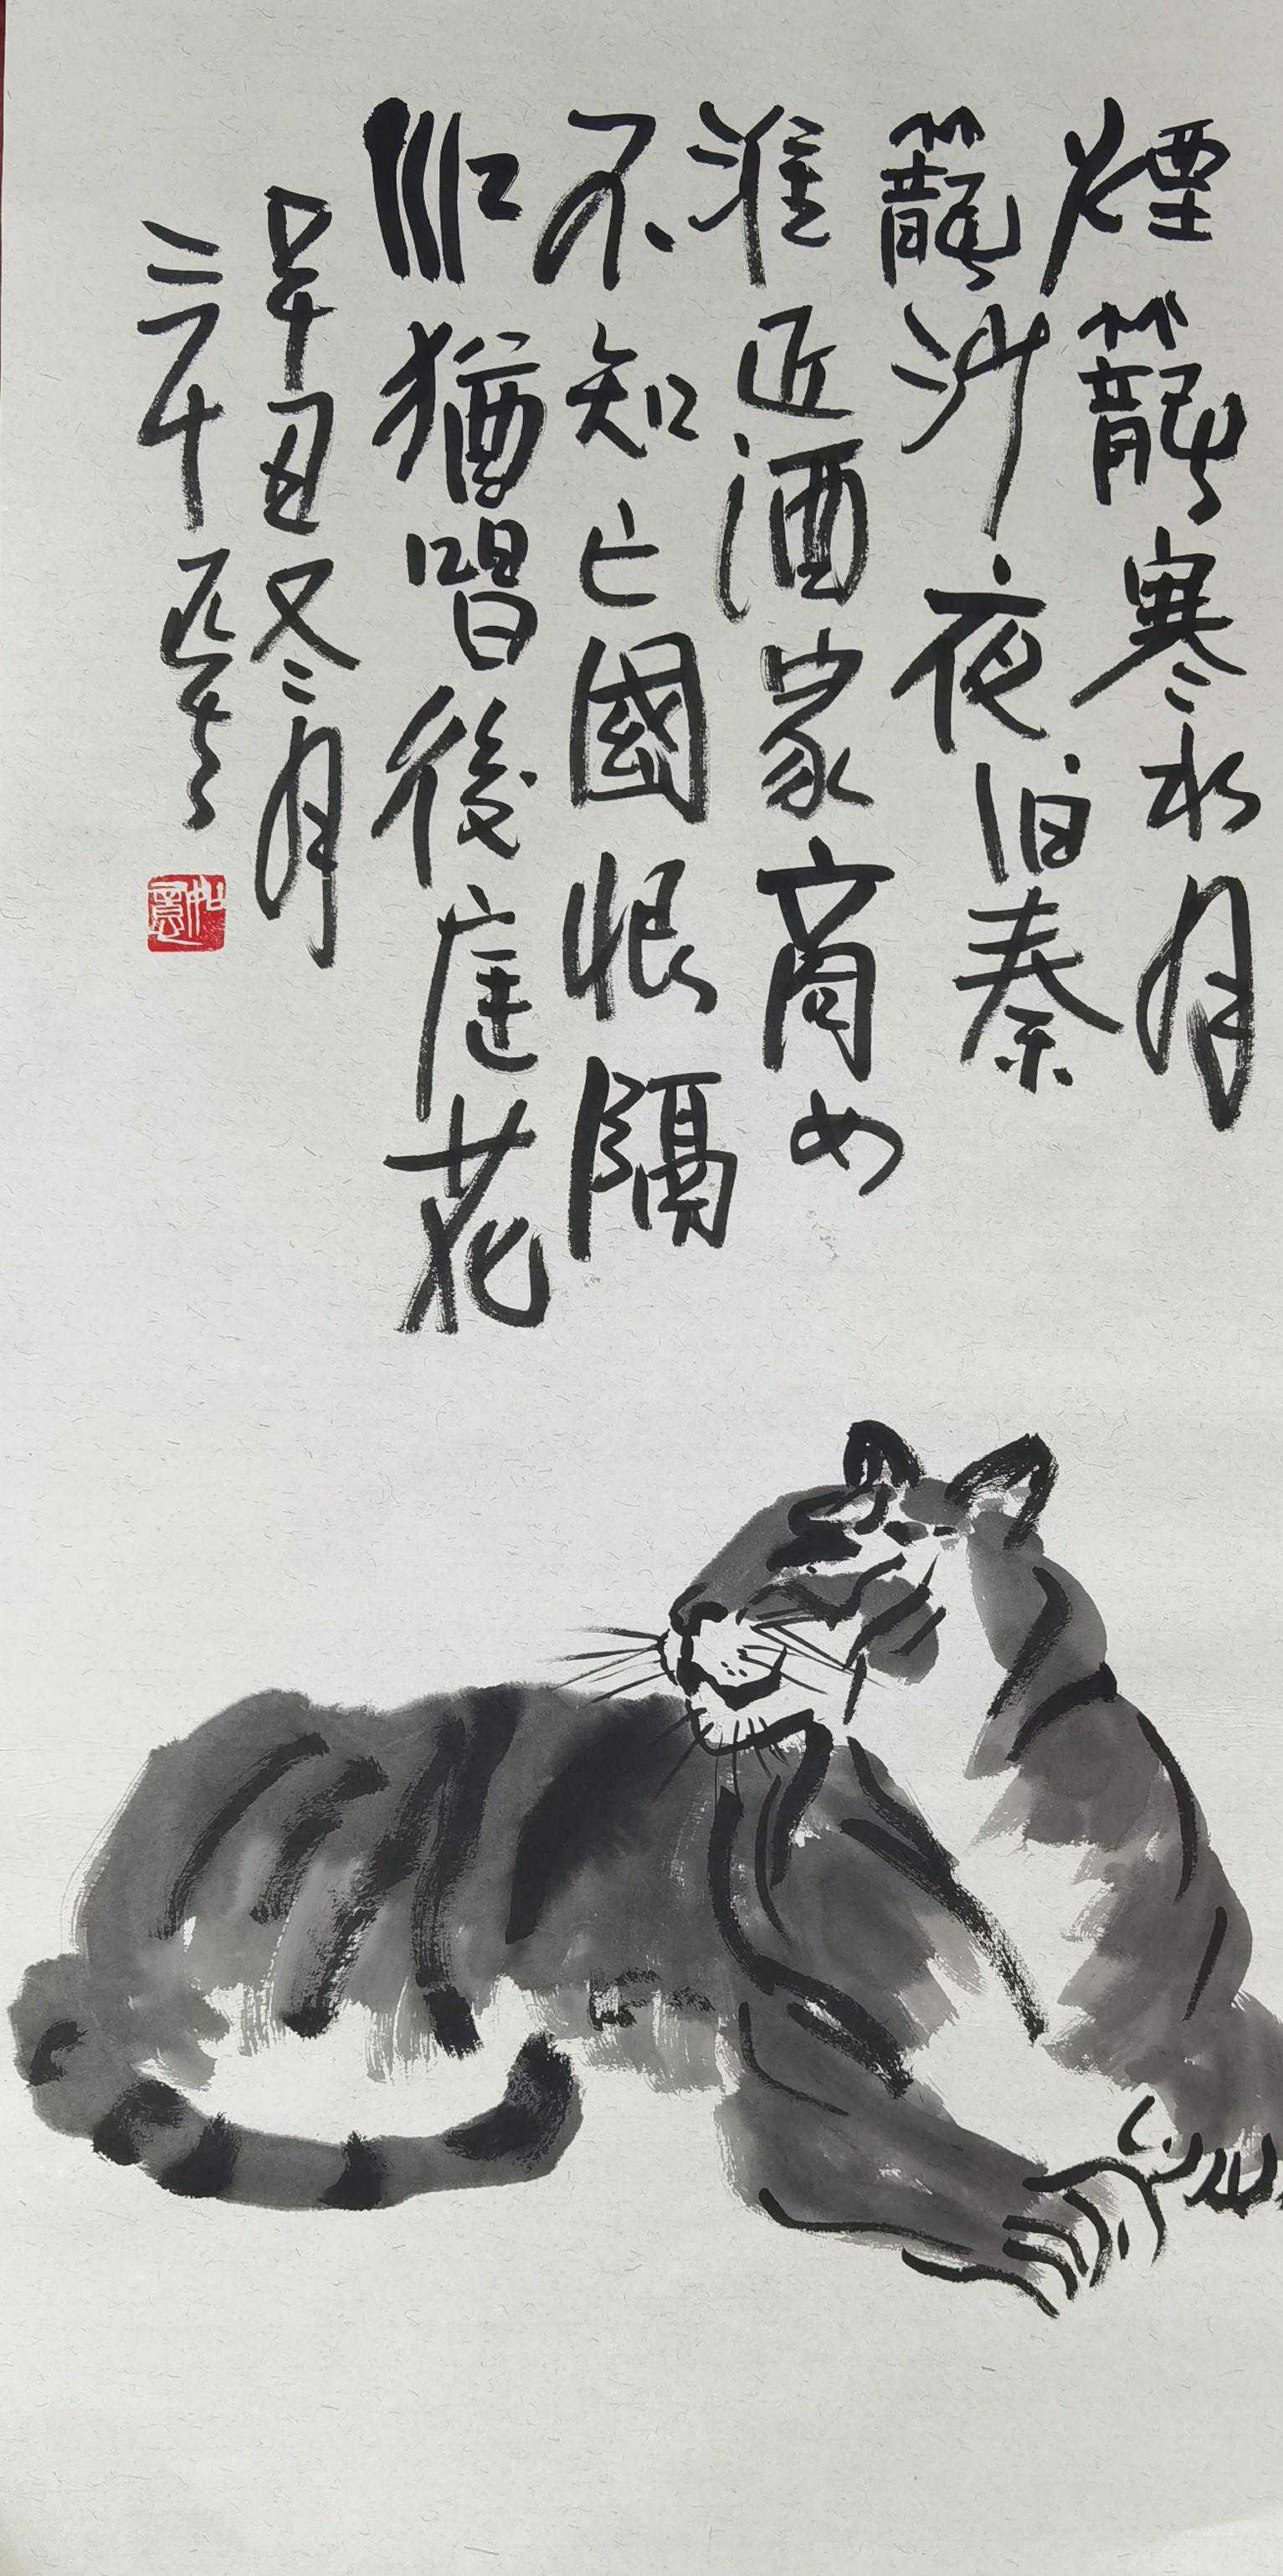 煙籠寒水月
籠沙夜泊秦
淮近酒家商女
不知亡國恨隔
江猶唱後庭花
辛丑冬月
如意